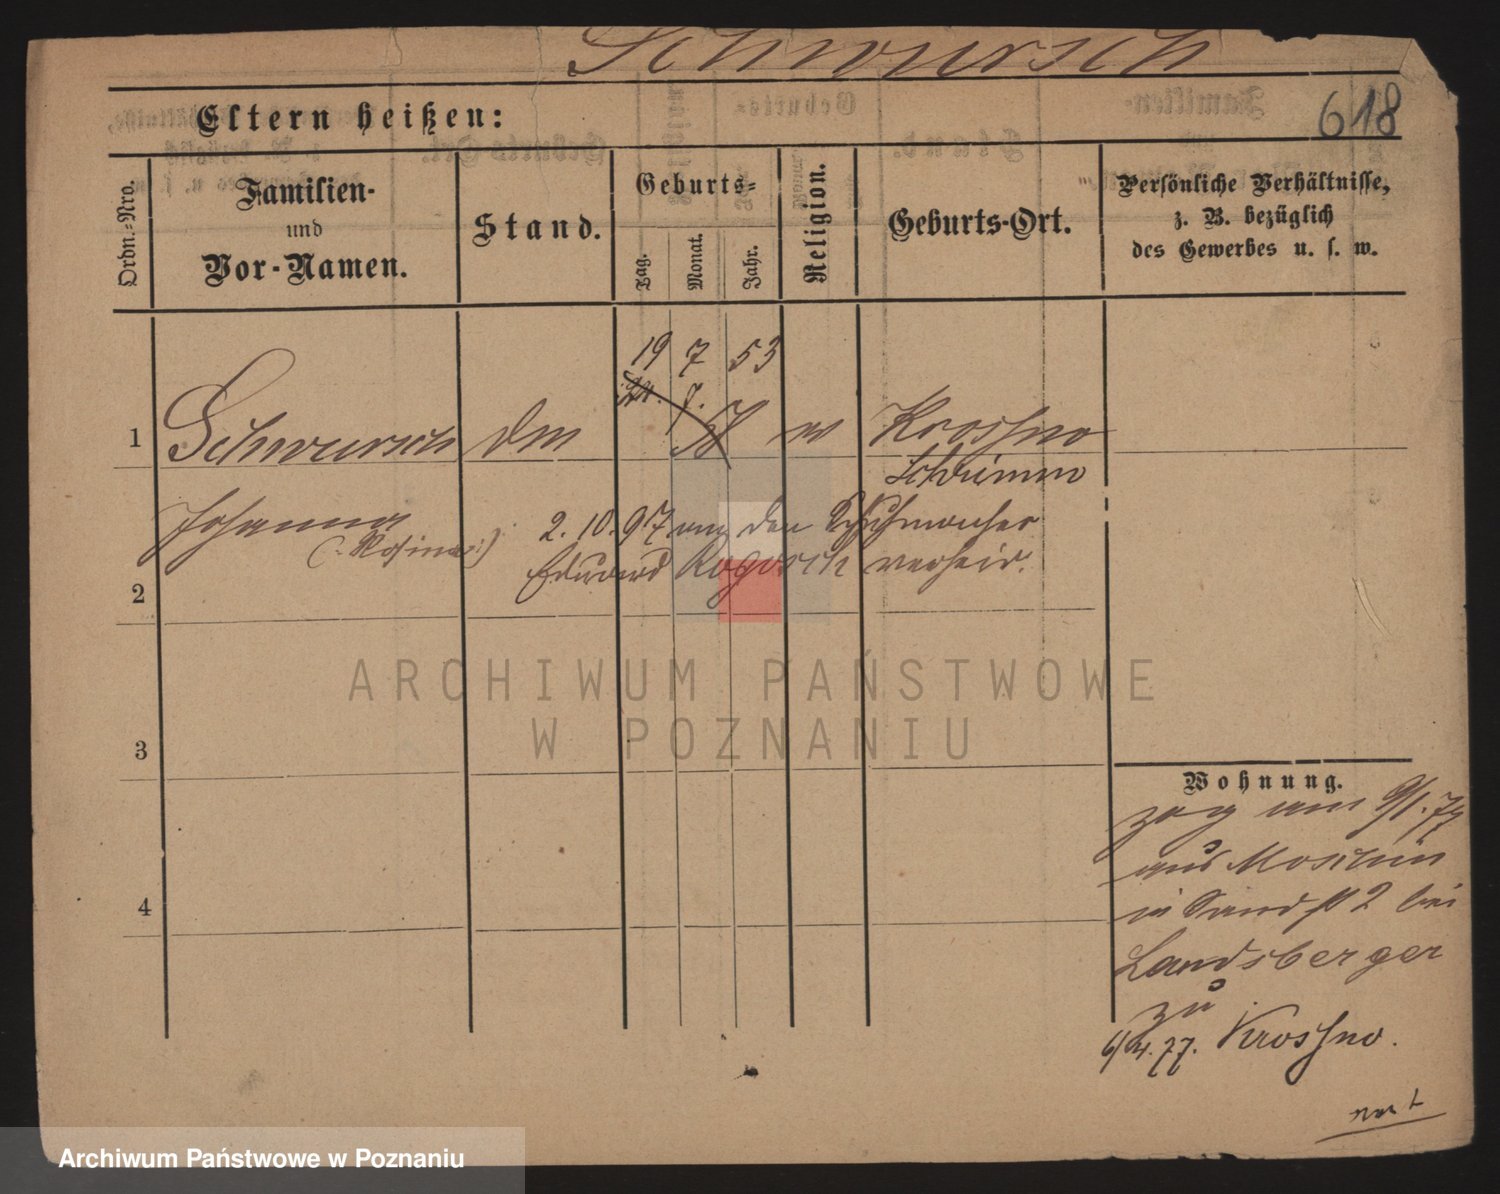 Schwursch
618
Eltern heißen:
Ordn.-Nro.
Familien-
und
Vor-Namen.
Stand.
Geburts-
Tag.
Monat.
Jahr.
Religion.
Geburts-Ort.
Persönliche Verhältnisse,
z. B. bezüglich
des Gewerbes u. s. w.
19 7 53
7.
1 Schwursch Krossno
Schrimm
Johanna
(: Rosina :)
2. 10. 97 mit den Schuhmacher
Eduard Rogosch verheir.
2
3
4
Wohnung.
zog am 9/1. 77
aus Moschin
in Sandst 2 bei
Landsberger
zu
6/4. 77. Krossno.
ARCHIWUM PAŃSTWOWE
W POZNANIU
Archiwum Państwowe w Poznaniu